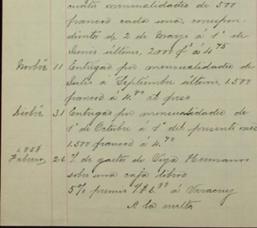 cuatro mensualidades de 500
francos cada una correspon
dientes de 2 de Marzo á 1º de
Junio último, 2000 f á 4.75
Novbre 11 Entregᵒ por mensualidades de
Julio á Septiembre último 1.500
francos á 4.80 el peso
Dicbre 31 Entregᵒ por mensualidades de
1º de Octubre á 1º del presente mes
1.500 francos á 4.70
Febrero 26 de gastos de Vega Hermanos
sobre una caja libros
5% premio á Veracruz
A la vuelta